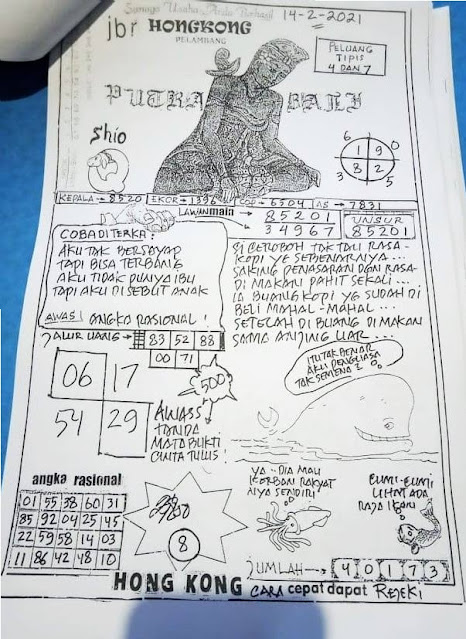 Semoga Usaha Anda Berhasil
14-2-2021
jbr HONGKONG
PELAMBANG
PELUANG
TIPIS
4 DAN 7
PUTRA BALI
Shio
6 0
1 9
3 2
3 5
KEPALA → 8520 EKOR → 1396 COP → 6504 AS → 7831
LAWAN main 85201
34967
UNSUR
85201
COBA DITERKA?
AKU TAK BERSAYAP
TAPI BISA TERBANG
AKU TIDAK PUNYA IBU
TAPI AKU DISEBUT ANAK
AWAS! ANGKO RASIONAL!
SI CEROBOH TAK TAU RASA-
KOPI YG SEBENARNYA...
SAKING PENASARAN DAN RASA-
DI MAKAN PAHIT SEKALI...
IA BUANG KOPI YG SUDAH DI
BELI MAHAL-MAHAL...
SETELAH DI BUANG DI MAKAN
SAMA ANJING LIAR...
JALUR UANG → 83 52 88
00 71
06 17
54 29
500
AWASS
TANDA
MATA BUKTI
CINTA TULUS!
ITU TAK BENAR
AKU PENGUASA
TAK SEMENA2
angka rasional
01 55 38 60 31
85 92 04 25 45
22 59 58 14 03
11 86 42 48 10
8
YA - DIA MAU
KORBAN RAKYAT
NYA SENDIRI
EUMI-EUMI
LIHAT ADA
RAJA IKAN
JUMLAH → 40173
HONG KONG CARA cepat dapat REJEKI